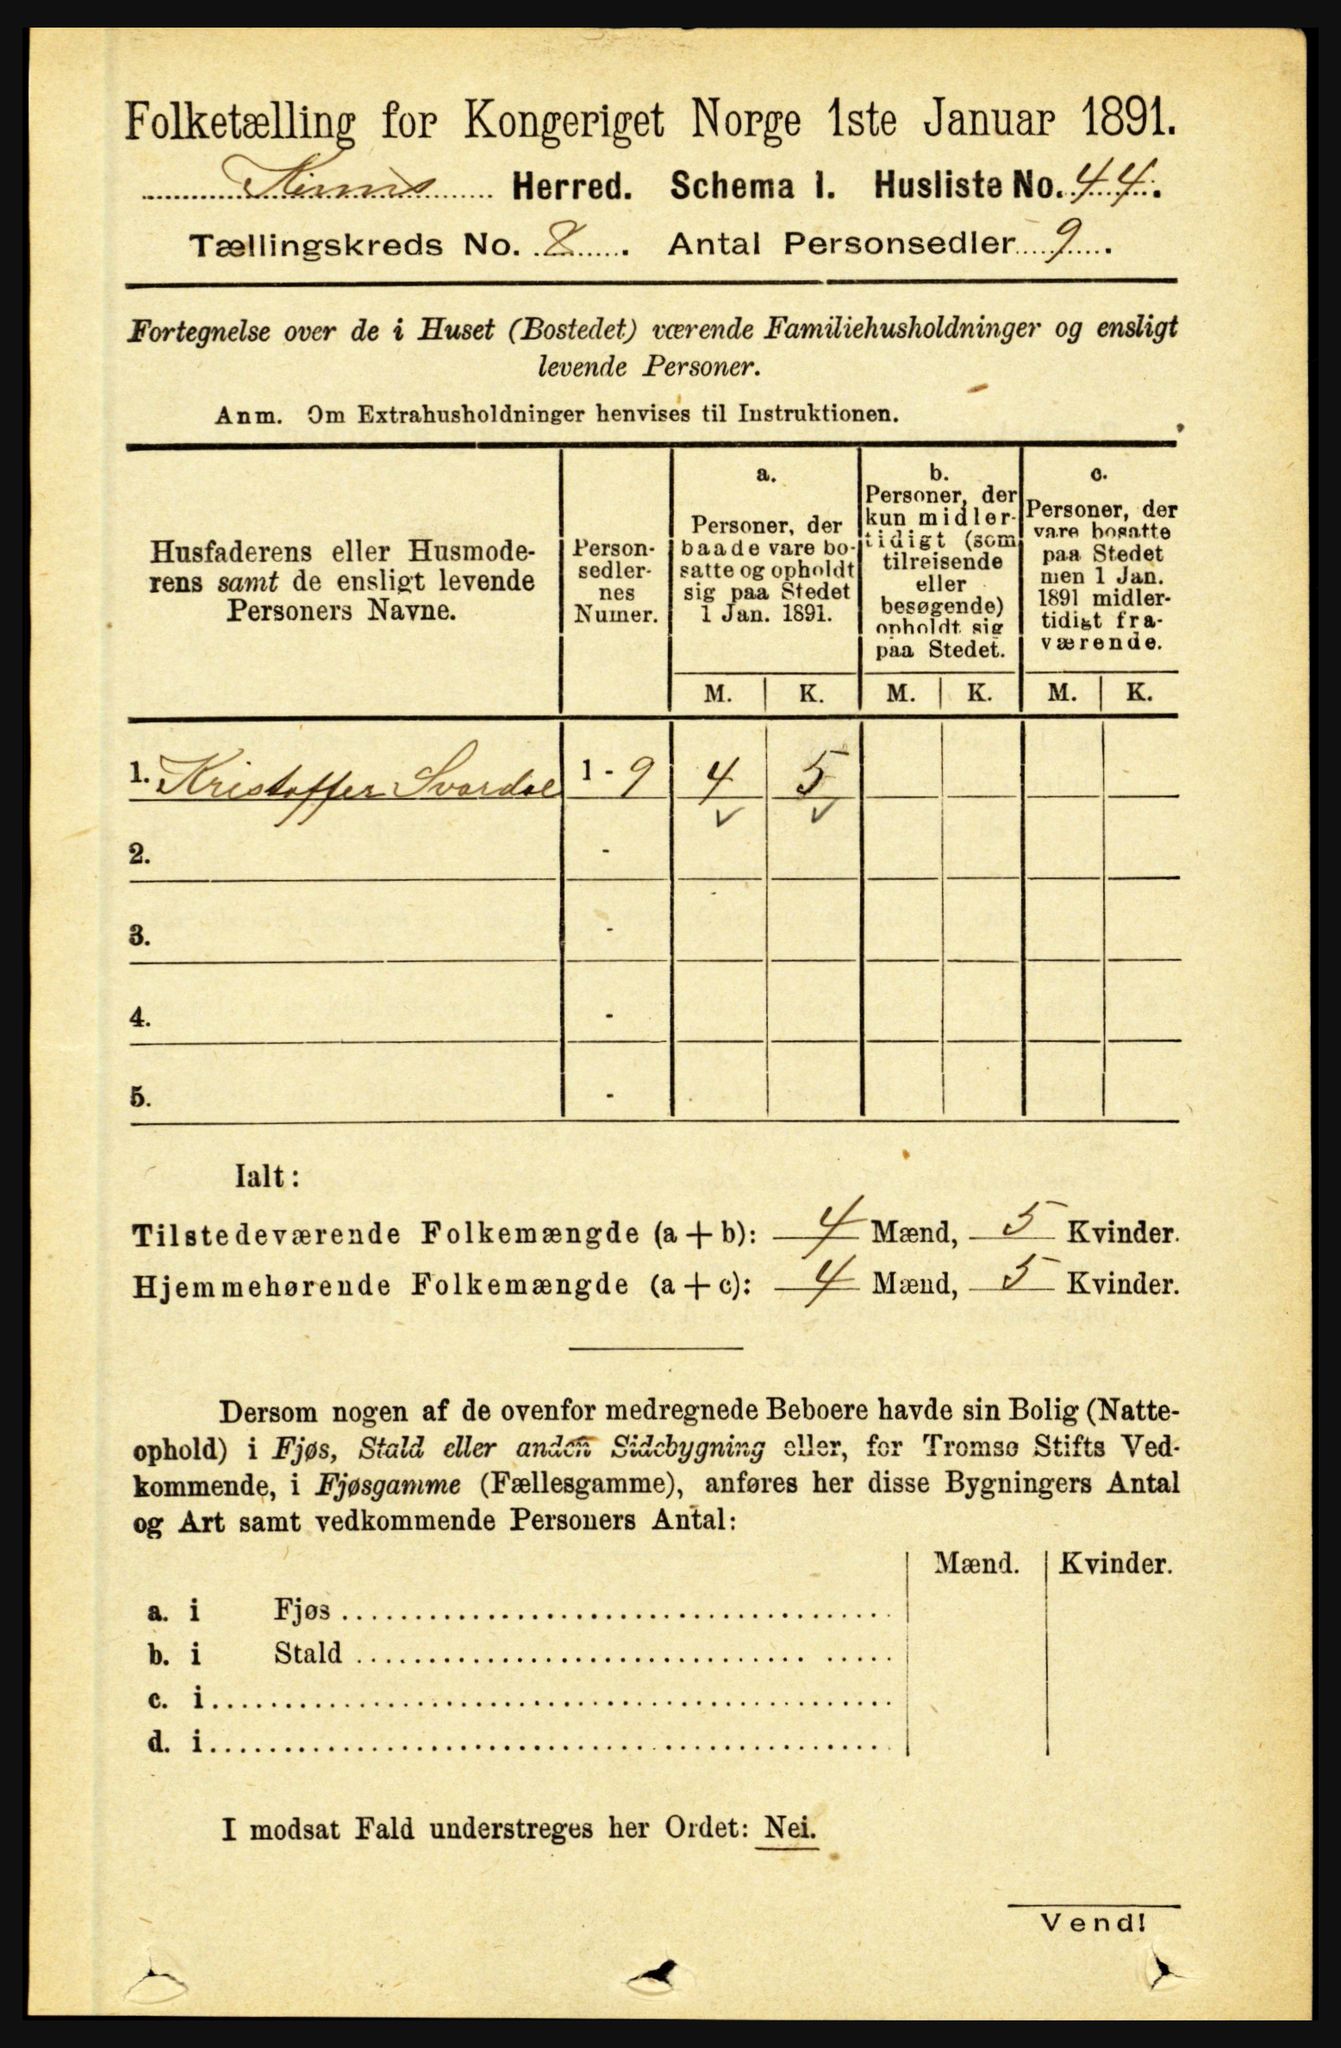 Folketælling for Kongeriget Norge 1ste Januar 1891.
Kinns Herred. Schema 1. Husliste No. 44.
Tællingskreds No. 8. Antal Personsedler 9.
Fortegnelse over de i Huset (Bostedet) værende Familiehusholdninger og ensligt
levende Personer.
Anm. Om Extrahusholdninger henvises til Instruktionen.
Husfaderens eller Husmode-
rens samt de ensligt levende
Personers Navne.
Person-
sedler-
nes
Numer.
a.
Personer, der
baade vare bo-
satte og opholdt
sig paa Stedet
1 Jan. 1891.
b.
Personer, der
kun midler-
tidigt (som
tilreisende
eller
besøgende)
opholdt sig
paa Stedet.
c.
Personer, der
vare bosatte
paa Stedet
men 1 Jan.
1891 midler-
tidigt fra-
værende.
M. K. M. K. M. K.
1. Kristoffer Svardal 1 - 9 4 5
2. -
3. -
4. -
5. -
Ialt:
Tilstedeværende Folkemængde (a + b): 4 Mænd, 5 Kvinder.
Hjemmehørende Folkemængde (a + c): 4 Mænd, 5 Kvinder.
Dersom nogen af de ovenfor medregnede Beboere havde sin Bolig (Natte-
ophold) i Fjøs, Stald eller anden Sidebygning eller, for Tromsø Stifts Ved-
kommende, i Fjøsgamme (Fællesgamme), anføres her disse Bygningers Antal
og Art samt vedkommende Personers Antal:
Mænd. Kvinder.
a. i Fjøs
b. i Stald
c. i
d. i
I modsat Fald understreges her Ordet: Nei.
Vend!